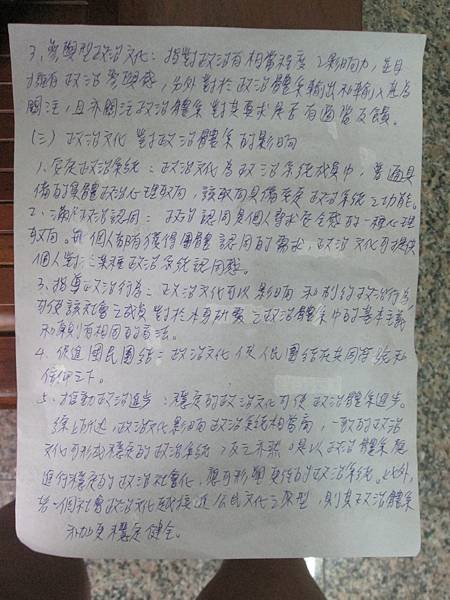 3、參與型政治文化：指對政治有相當程度之影響力，並且
擁有政治參與感，另外對於政治體系輸出和輸入甚為
關注，且亦關注政治體系對其要求是否有適當反饋。
(三) 政治文化對政治體系的影響
1、安定政治系統：政治文化為政治系統成員中，普遍具
備的集體政治心理取向，該取向具備安定政治系統之功能。
2、滿足政治認同：政治認同是個人尋求安全感的一種心理
取向。每個人都有獲得團體認同的需求，政治文化可提供
個人對某種政治系統認同感。
3、指導政治行為：政治文化可以影響和制約政治行為
可使該社會之成員對於本身所處之政治體系中的基本主義
和原則有相同的看法。
4、促進國民團結：政治文化使人民團結在共同符號和
信仰之下。
5、推動政治進步：穩定的政治文化可使政治體系進步。
綜上所述，政治文化影響政治系統相當高，一致的政治
文化可形成穩定的政治系統，反之亦然。是以政治體系應
進行穩定的政治社會化，應可形塑更佳的政治系統。此外，
若一個社會政治文化越接近公民文化之原型，則其政治體系
亦加更穩定健全。